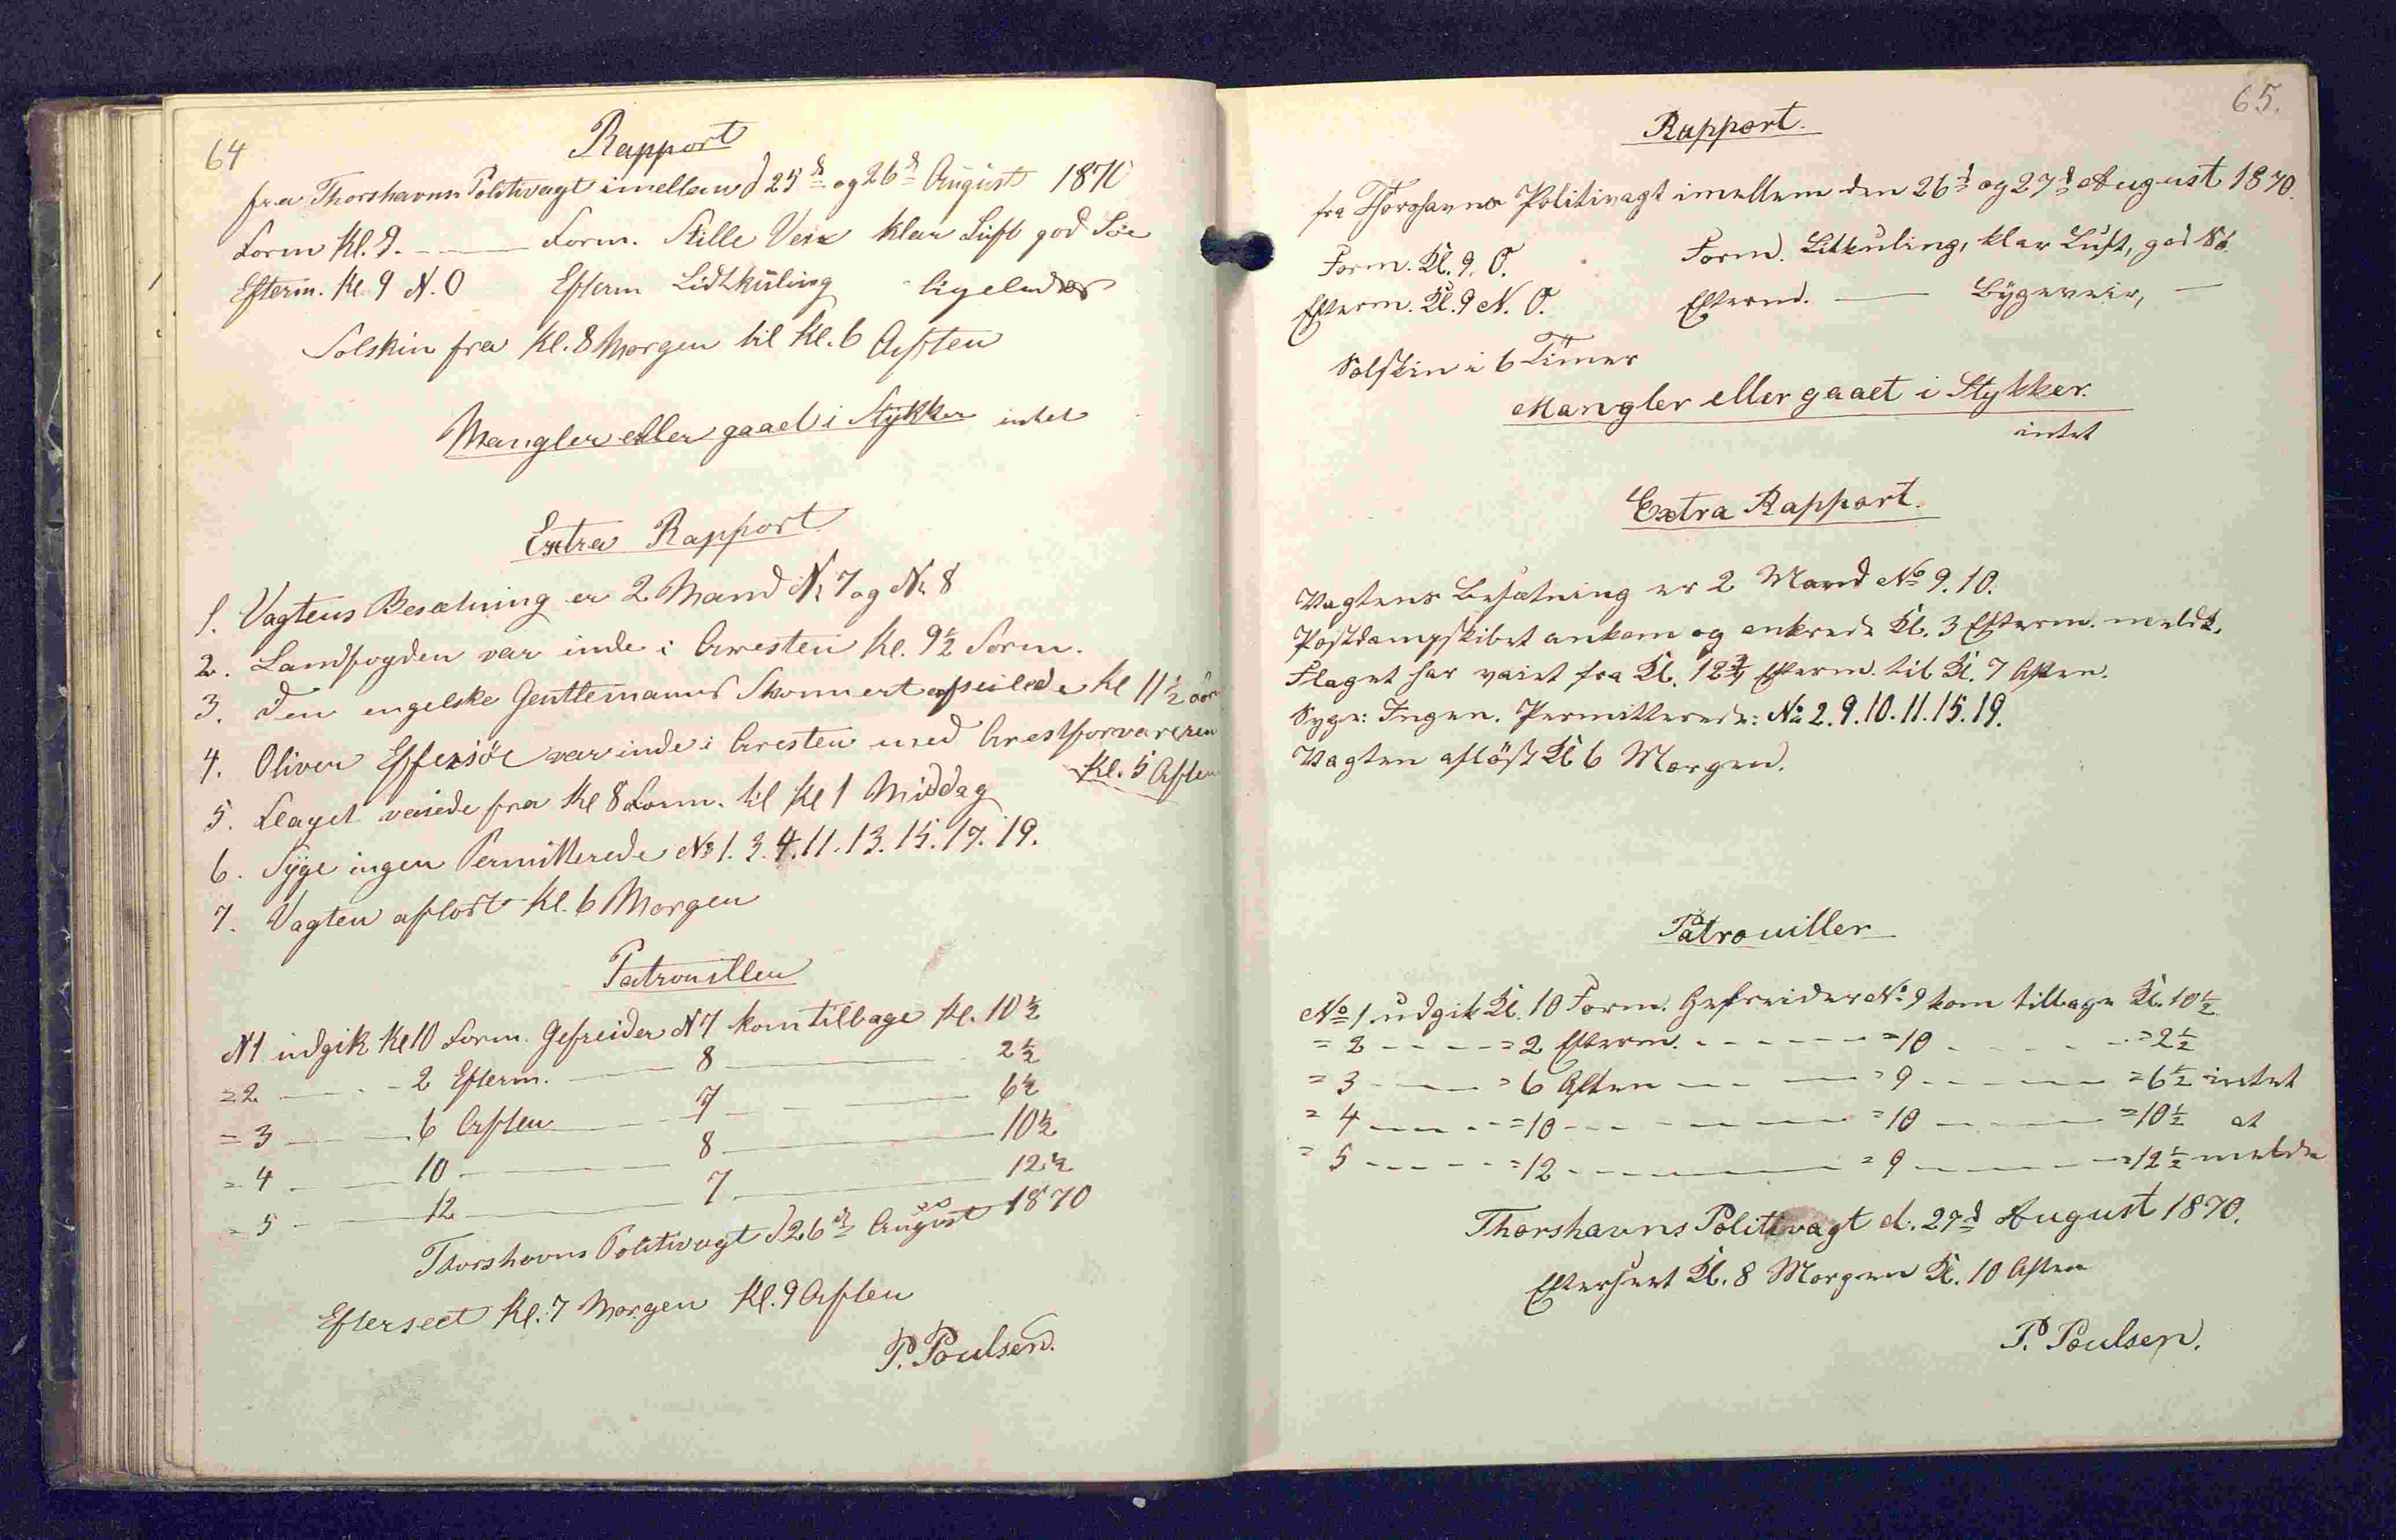 64
Rapport
fra Thorshavns Politivagt imellem d 25de og 26de August 1870
Form Kl. 9. — Form. Stille Veir klar Luft god Söe
Efterm. Kl. 9 N. O Efterm Lidt kuling ligeledes
Solskin fra Kl. 8 Morgen til Kl. 6 Aften
Mangler eller gaaet i Stykker intet
Extra Rapport
1. Vagtens Besætning er 2 Mand No 7 og No 8
2. Landfogden var inde i Arresten Kl. 9½ Form.
3. Den engelske Gentlemans Skonnert afseilede Kl 11½
4. Oliver Effersöe var inde i Aresten med Arestforvareren
Kl. 5 Aften
5. Flaget veiede fra Kl 8 Form. til Kl 1 Middag
6. Syge ingen Permitterede No 1. 3. 4. 11. 13. 15. 17. 19.
7. Vagten aflöst Kl. 6 Morgen
Patrouillen
N 1 udgik Kl 10 Form. Gefreider N 7 kom tilbage Kl. 10½
= 2 — 2 Efterm. — 8 — 2½
= 3 — 6 Aften — 7 — 6½
= 4 — 10 — 8 — 10½
= 5 — 12 — 7 — 12½
Thorshavns Politivagt d 26de August 1870
Efterseet Kl. 7 Morgen Kl. 9 Aften
P. Poulsen.
65.
Rapport.
fra Thorshavns Politivagt imellem den 26d og 27d August 1870.
Form. Kl. 9. O. Form. Lidkuling, klar Luft, god Sö.
Efterm. Kl. 9 N. O. Efterm. — Bygeveir, —
Solskin i 6 Timer
Mangler eller gaaet i Stykker.
intet
Extra Rapport.
Vagtens Besætning er 2 Mand No 9. 10.
Postdampskibet ankom og ankrede Kl. 3 Efterm. meldt.
Flaget har vaiet fra Kl. 12¾ Efterm. til Kl. 7 Aften.
Syge: Ingen. Permitterede: No 2. 9. 10. 11. 15. 19.
Vagten aflöst Kl 6 Morgen.
Patrouiller
No 1 udgik Kl. 10 Form. Gefreider No 9 kom tilbage Kl. 10½
= 2 - - - = 2 Efterm. - - - = 10 - - - = 2½
= 3 - - - = 6 Aften - - - = 9 - - - = 6½ intet
= 4 - - - = 10 - - - = 10 - - - = 10½ at
= 5 - - - = 12 - - - = 9 - - - = 12½ melde
Thorshavns Politivagt d. 27d August 1870.
Efterseet Kl. 8 Morgen Kl. 10 Aften
P. Poulsen.